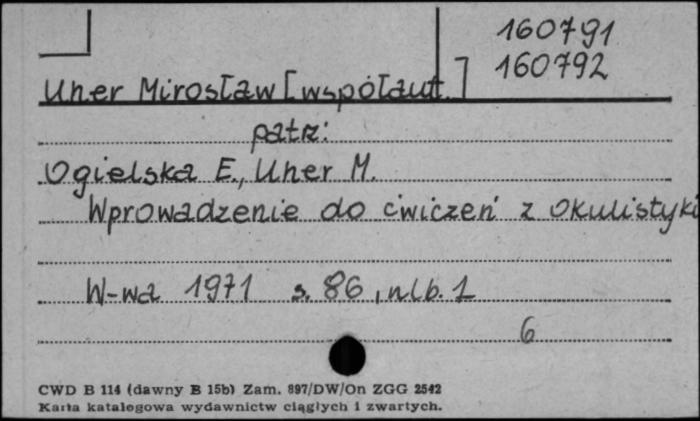 160791
160792
Uher Mirosław [współaut.]
patrz:
Ogielska E., Uher M.
Wprowadzenie do ćwiczeń z okulistyki
W-wa 1971 s. 86, nlb. 1
6
CWD B 114 (dawny B 15b) Zam. 897/DW/On ZGG 2542
Karta katalogowa wydawnictw ciągłych i zwartych.